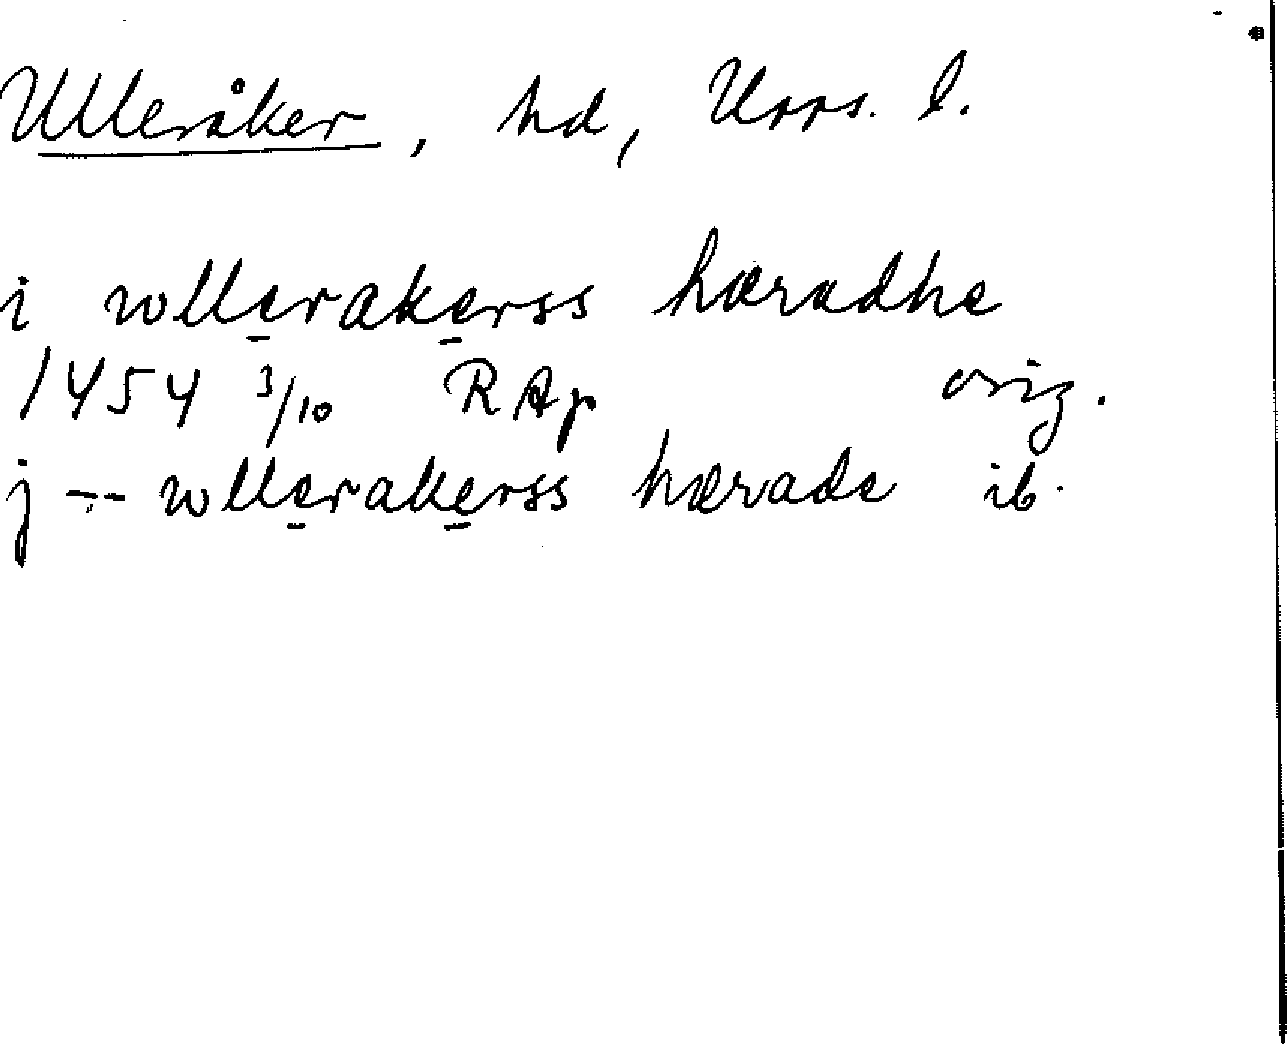 Ulleråker, hd, Upps. l.
i wllerakerss hæradhe
1454 3/10 RAp orig.
j -- wllerakerss hærade ib.